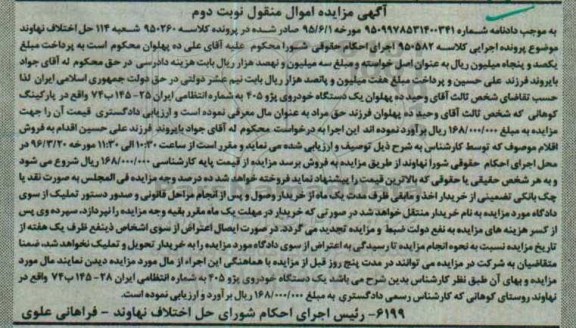 آگهی مزایده اموال منقول نوبت دوم
به موجب دادنامه شماره ۹۵۰۹۹۷۸۵۳۱۴۰۰۳۴۱ مورخه ۹۵/۶/۱ صادر شده در پرونده کلاسه ۹۵۰۲۶۰ شعبه ۱۱۴ حل اختلاف نهاوند
موضوع پرونده اجرایی کلاسه ۹۵۰۵۸۲ اجرای احکام حقوقی شورا محکوم علیه آقای علی ده پهلوان محکوم است به پرداخت مبلغ
یکصد و پنجاه میلیون ریال به عنوان اصل خواسته و مبلغ سه میلیون و نهصد هزار ریال بابت هزینه دادرسی در حق محکوم له آقای جواد
بایروند فرزند علی حسین و پرداخت مبلغ هفت میلیون و پانصد هزار ریال بابت نیم عشر دولتی در حق دولت جمهوری اسلامی ایران لذا
حسب تقاضای شخص ثالث آقای وحید ده پهلوان یک دستگاه خودروی پژو ۴۰۵ به شماره انتظامی ایران ۲۵- ۱۴۵ب۷۴ واقع در پارکینگ
کوهانی که شخص ثالث آقای وحید ده پهلوان فرزند حق مراد به عنوان مال معرفی نموده است و ارزیابی دادگستری قیمت آن را جهت
مزایده به مبلغ ۱۶۸/۰۰۰/۰۰۰ ریال برآورد نموده اند این اجرا به درخواست محکوم له آقای جواد بایروند فرزند علی حسین اقدام به فروش
اقلام موصوف که توسط کارشناس به شرح ذیل توصیف و ارزیابی شده می نماید و مقرر است از ساعت ۱۰:۳۰ الی ۱۱:۳۰ مورخه ۹۶/۳/۲۰ در
محل اجرای احکام حقوقی شورا نهاوند از طریق مزایده به فروش برسد مزایده از قیمت پایه کارشناسی ۱۶۸/۰۰۰/۰۰۰ ریال شروع می شود
و به هر شخص حقیقی یا حقوقی که بالاترین قیمت را پیشنهاد نماید فروخته خواهد شد ده درصد وجه مزایده فی المجلس به صورت نقد یا
چک بانکی تضمینی از خریدار اخذ و مابقی ظرف مدت یک ماه از خریدار وصول و پس از انجام مراحل قانونی و صدور دستور تملیک از سوی
دادگاه مورد مزایده به نام خریدار منتقل خواهد شد در صورتی که خریدار در مهلت یک ماه مقرر بقیه وجه مزایده را نپردازد، سپرده وی پس
از کسر هزینه های مزایده به نفع دولت ضبط و مزایده تجدید می گردد. در صورت ایصال اعتراض از سوی اشخاص ذینفع ظرف یک هفته از
تاریخ مزایده نسبت به نحوه انجام مزایده تا رسیدگی به اعتراض از سوی دادگاه مورد مزایده را به خریدار تحویل و تملیک نخواهد شد، ضمنا
متقاضیان به شرکت در مزایده می توانند در مدت پنج روز قبل از مزایده با هماهنگی این اجراء از مال مورد مزایده دیدن نمایند مال مورد
مزایده و بهای آن طبق نظر کارشناس بدین شرح می باشد یک دستگاه خودروی پژو ۴۰۵ به شماره انتظامی ایران ۲۸- ۱۴۵ ب۷۴ واقع در
نهاوند روستای کوهانی که کارشناس رسمی دادگستری به مبلغ ۱۶۸/۰۰۰/۰۰۰ ریال برآورد و ارزیابی نموده است.
۶۱۹۹- رئیس اجرای احکام شورای حل اختلاف نهاوند - فراهانی علوی